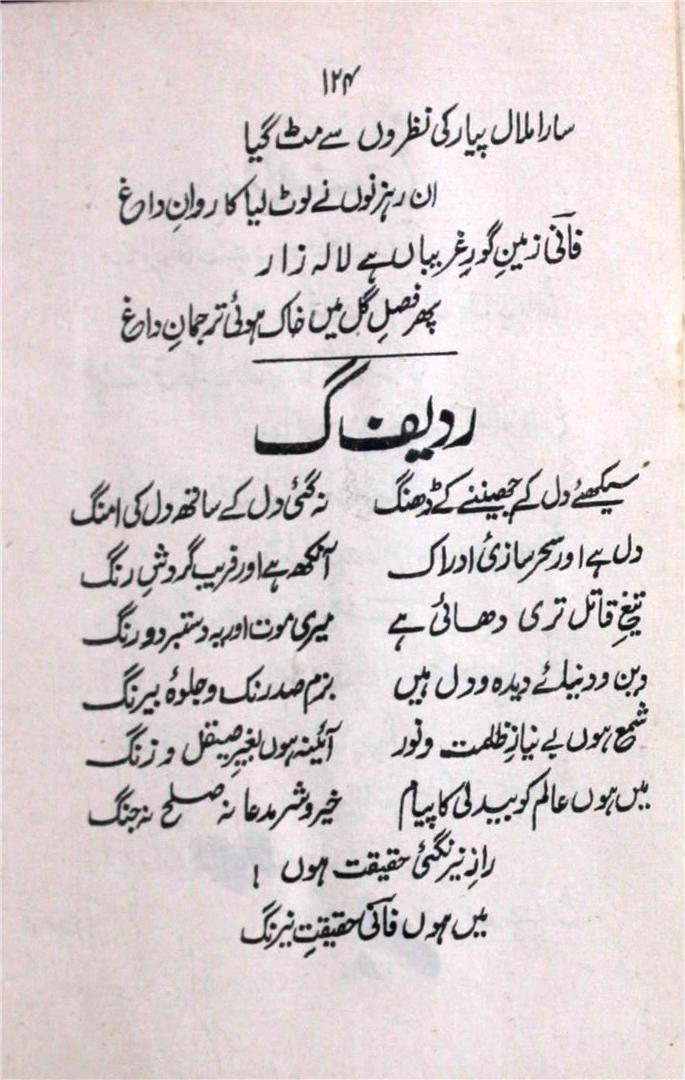 ۱۲۴
سارا ملال پیار کی نظروں سے مٹ گیا
ان رہزنوں نے لوٹ لیا کاروانِ داغ
فانؔی زمینِ گورِ غریباں ہے لالہ زار
پھر فصلِ گل میں خاک ہوئی ترجمانِ داغ
ردیف گ
سیکھئے دل کے چھیننے کے ڈھنگ نہ گئی دل کے ساتھ دل کی امنگ
دل ہے اور سحر سازیٔ ادراک آنکھ ہے اور فریبِ گردشِ رنگ
تیغِ قاتل تری دھائی ہے میری موت اور بہ دستبردِ رنگ
دین و دنیائے دیدہ و دل ہیں بزم صد رنگ و جلوۂ بیرنگ
شمع ہوں بے نیازِ ظلمت و نور آئینہ ہوں بغیرِ صیقل و زنگ
میں ہوں عالم کو بیدلی کا پیام خیر و شر مدعا نہ صلح نہ جنگ
رازِ نیرنگیٔ حقیقت ہوں !
میں ہوں فانؔی حقیقتِ نیرنگ